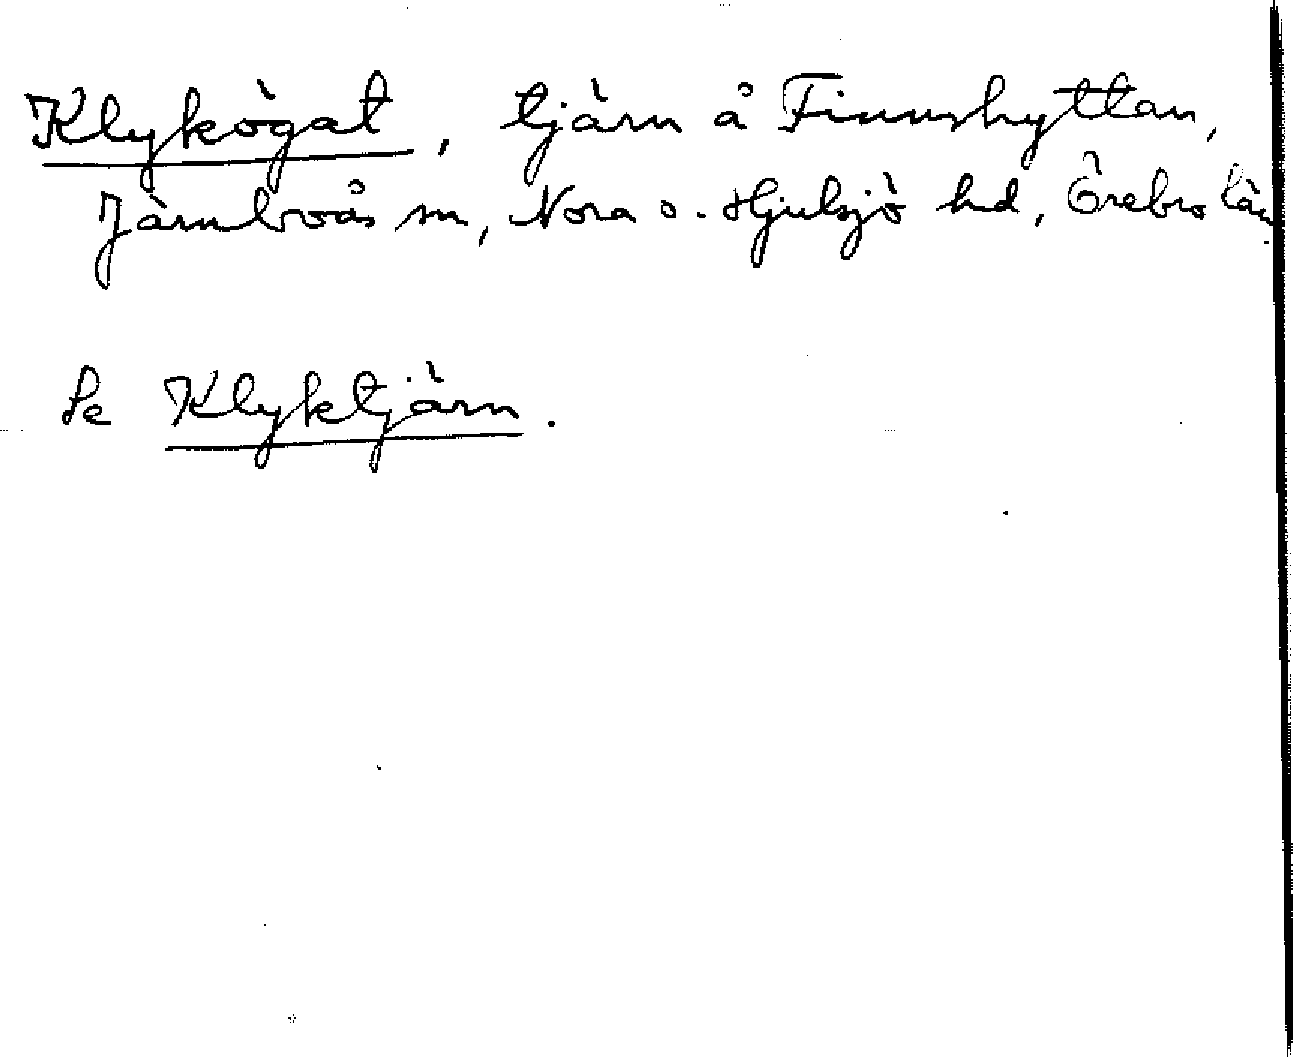 Klykögat, tjärn å Finnshyttan,
Järnboås sn, Nora o. Hjulsjö hd, Örebro län.
Se Klyktjärn.